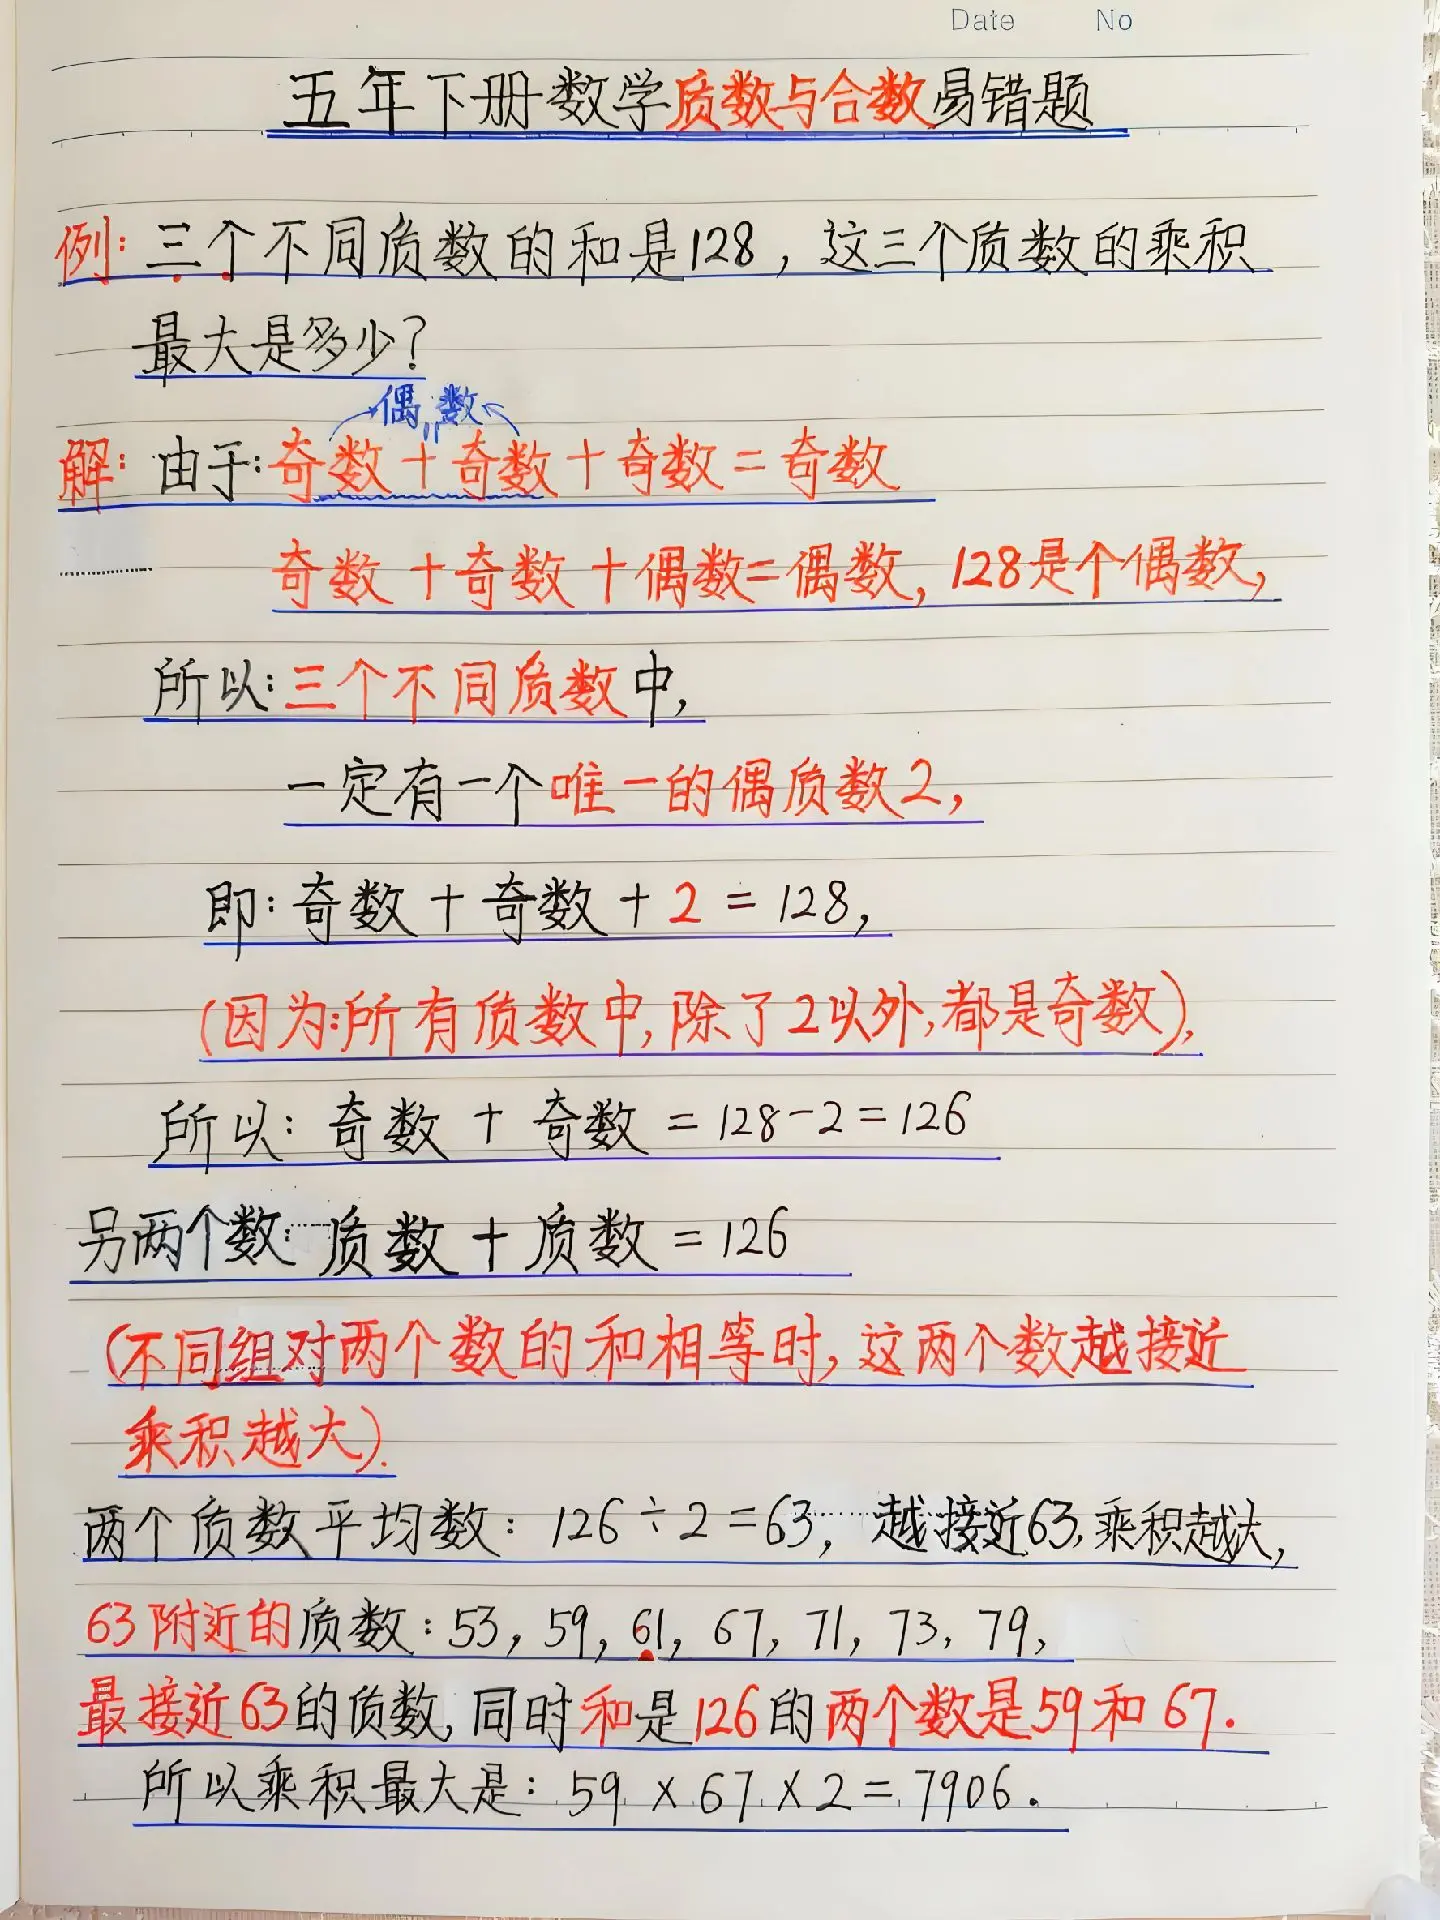 Date No
五年下册数学质数与合数易错题
例：三个不同质数的和是128，这三个质数的乘积
最大是多少？
偶数
解：由于：奇数＋奇数＋奇数＝奇数
奇数＋奇数＋偶数＝偶数，128是个偶数，
所以：三个不同质数中，
一定有一个唯一的偶质数2，
即：奇数＋奇数＋2＝128，
（因为：所有质数中，除了2以外，都是奇数），
所以：奇数＋奇数＝128－2＝126
另两个数：质数＋质数＝126
（不同组对两个数的和相等时，这两个数越接近
乘积越大）.
两个质数平均数：126÷2＝63，越接近63，乘积越大，
63附近的质数：53，59，61，67，71，73，79，
最接近63的质数，同时和是126的两个数是59和67.
所以乘积最大是：59×67×2＝7906.